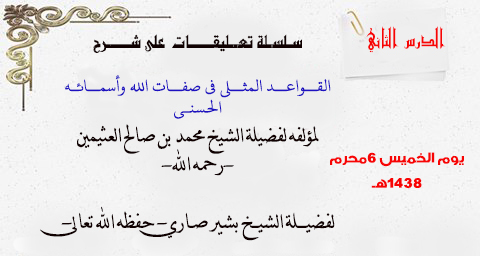 الدرس الثاني
سلسلة تعليقات على شرح
القواعد المثلى في صفات الله وأسمائه
الحسنى
لمؤلفه لفضيلة الشيخ محمد بن صالح العثيمين
-رحمه الله-
يوم الخميس 6محرم
1438هـ
لفضيلة الشيخ بشير صاري-حفظه الله تعالى-